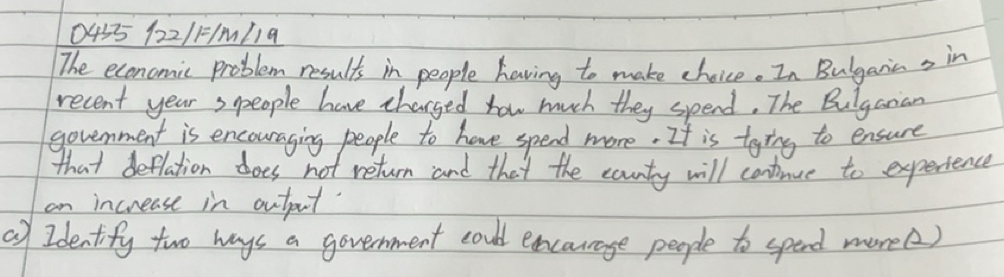 0455 /22/F/M/19
The economic problem results in people having to make choice. In Bulgaria, in
recent year, people have charged how much they spend. The Bulgarian
government is encouraging people to have spend more. It is tging to ensure
that deflation does not return and that the county will continue to experience
an increase in output.
a) Identify two ways a government could encourage people to spend more (2)